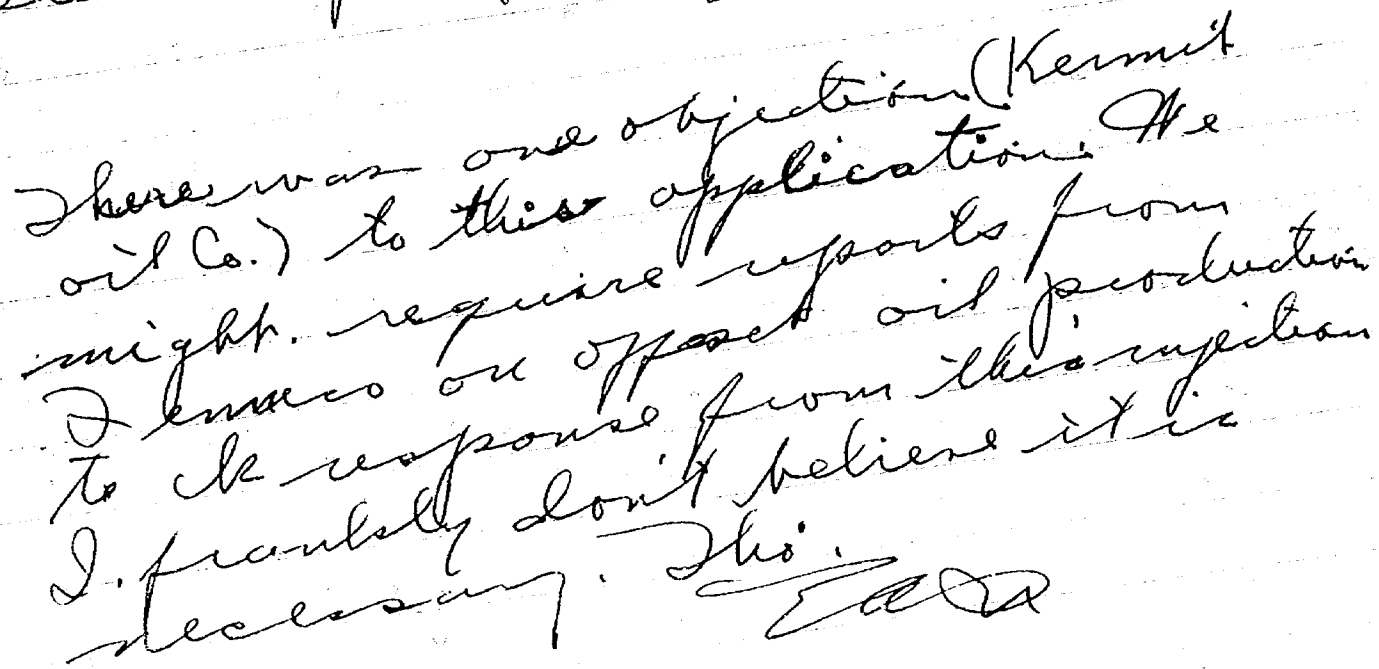 There was one objection (Kermit
oil Co.) to this application. We
might. require reports from
Temeco on offset oil production
to ck response from this injection
I. frankly don't believe it is
necessary. Tho.